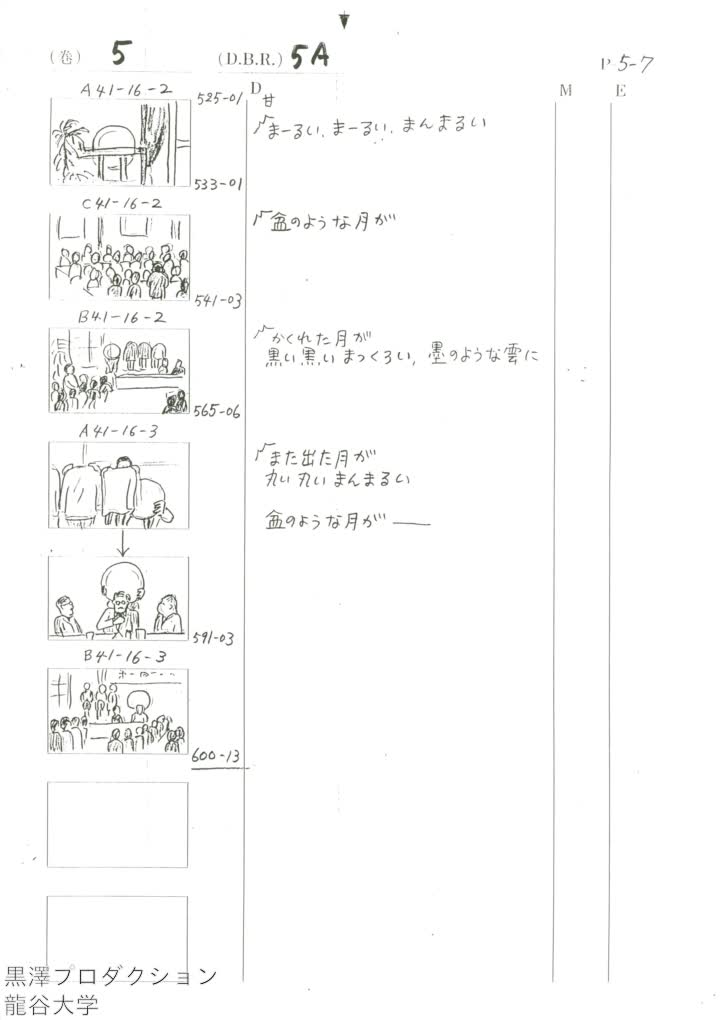 (巻) 5 (D.B.R.) 5A P 5-7
D M E
A41-16-2 525-01 甘
〽まーるい、まーるい、まんまるい
533-01
C41-16-2
〽盆のような月が
541-03
B41-16-2
〽かくれた月が
黒い黒いまっくろい、墨のような雲に
565-06
A41-16-3
〽また出た月が
丸い丸いまんまるい
盆のような月が——
591-03
B41-16-3
600-13
黒澤プロダクション
龍谷大学